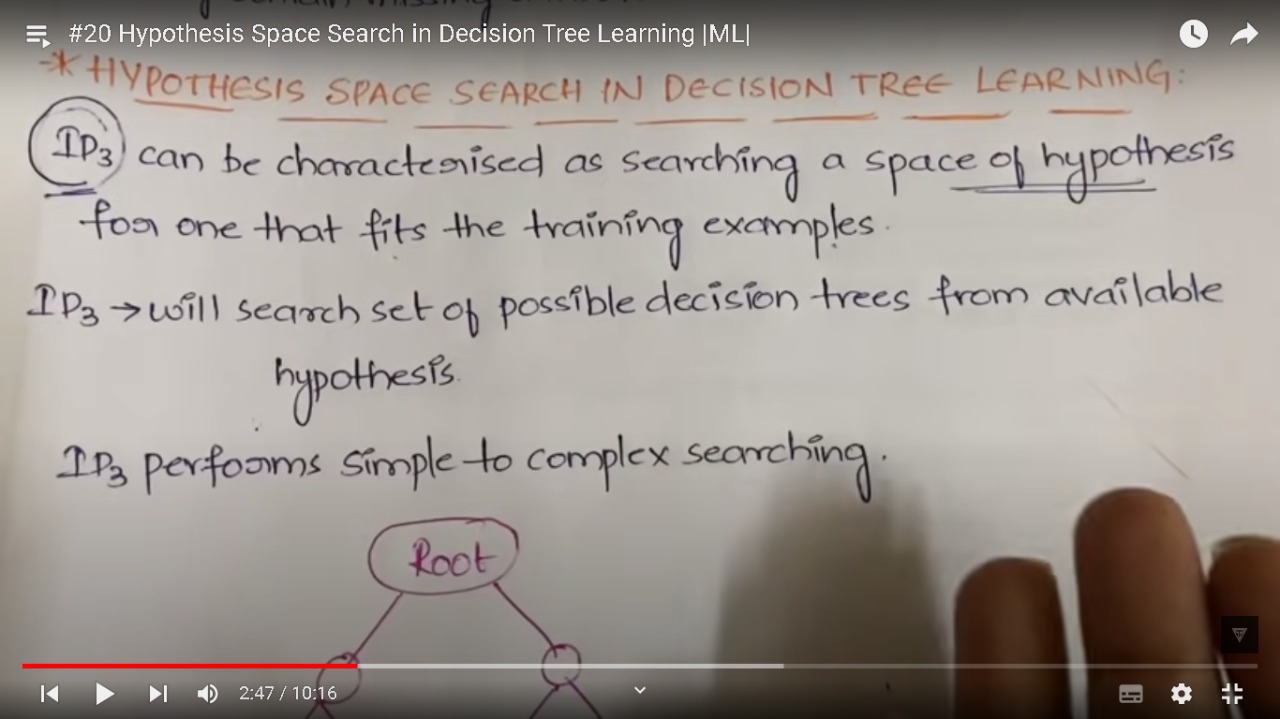 #20 Hypothesis Space Search in Decision Tree Learning |ML|
* HYPOTHESIS SPACE SEARCH IN DECISION TREE LEARNING:
ID3 can be characterised as searching a space of hypothesis
for one that fits the training examples.
ID3 → will search set of possible decision trees from available
hypothesis.
ID3 performs simple to complex searching.
Root
2:47 / 10:16